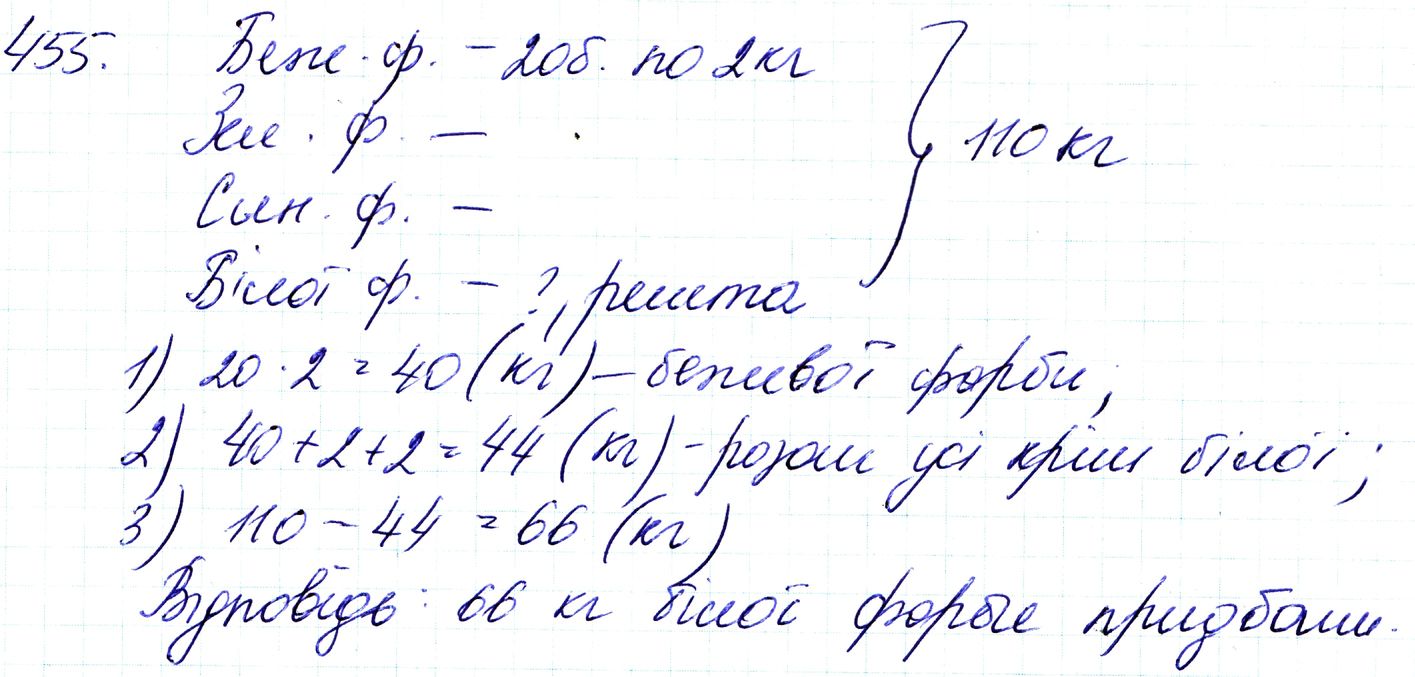 455. Беж. ф. – 20 б. по 2 кг
Жи. ф. –
Син. ф. –
110 кг
Білої ф. – ?, решта
1) 20 · 2 = 40 (кг) – бежевої фарби;
2) 40 + 2 + 2 = 44 (кг) – разом усі крім білої;
3) 110 – 44 = 66 (кг)
Відповідь: 66 кг білої фарби придбали.